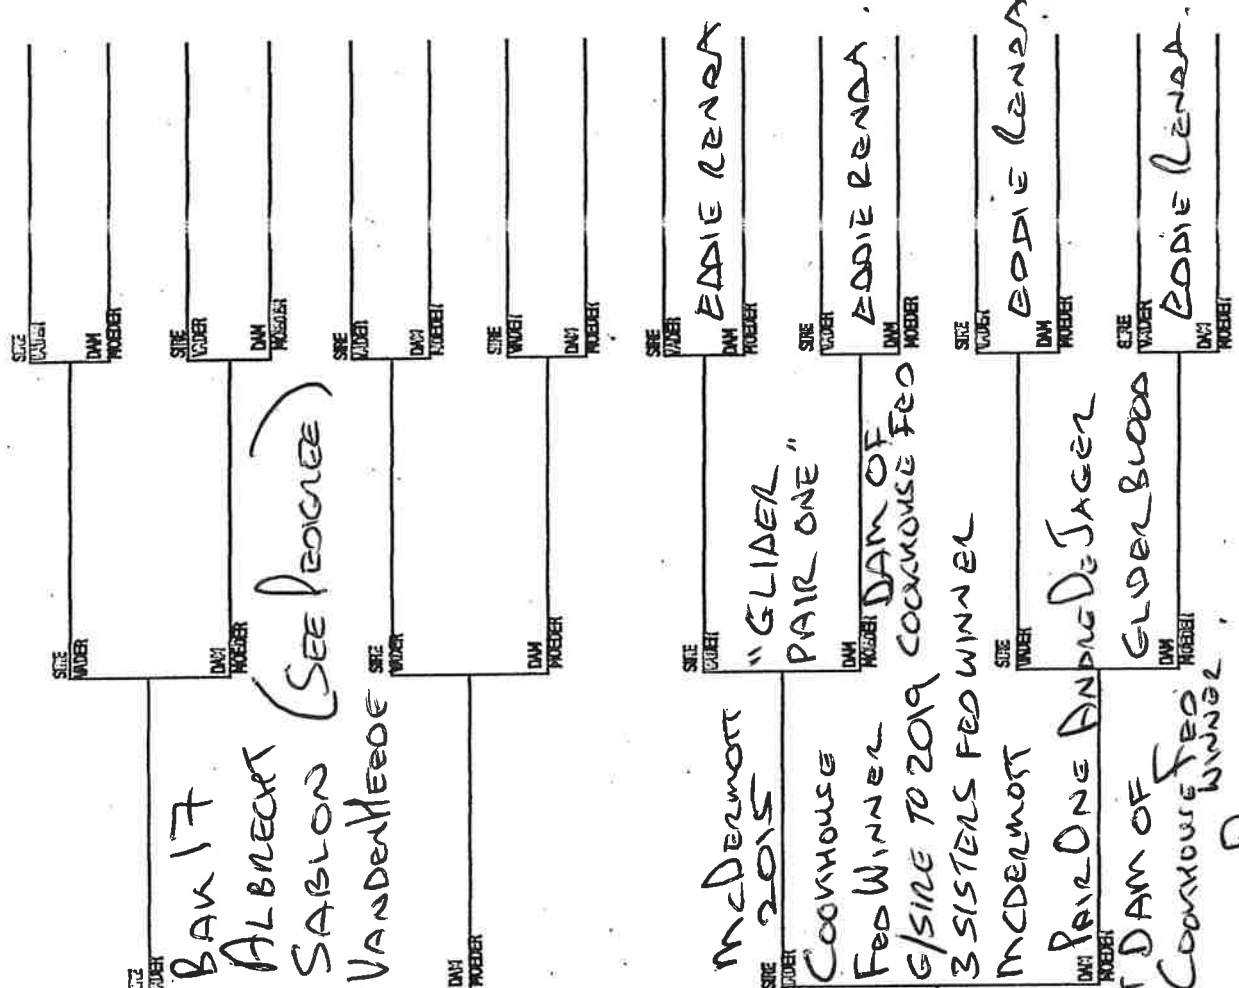 SIRE
VADER
BAK 17
ALBRECHT
SABLON
VANDENHEEDE
DAM
MOEDER
SIRE
VADER
DAM
MOEDER
(SEE PEDIGREE)
SIRE
VADER
DAM
MOEDER
SIRE
VADER
DAM
MOEDER
SIRE
VADER
DAM
MOEDER
SIRE
VADER
DAM
MOEDER
SIRE
VADER
DAM
MOEDER
SIRE
VADER
McDERMOTT
2015
COOKHOUSE
FED WINNER
G/SIRE TO 2019
3 SISTERS FED WINNER
MCDERMOTT
DAM
MOEDER
PAIR ONE ANDRE DE JAGER
DAM OF
COOKHOUSE FED
WINNER.
SIRE
VADER
"GLIDER
PAIR ONE"
DAM
MOEDER
DAM OF
COOKHOUSE FED
SIRE
VADER
DAM
MOEDER
GLIDER BLOOD
SIRE
VADER
EDDIE RENDA
DAM
MOEDER
SIRE
VADER
EDDIE RENDA.
DAM
MOEDER
SIRE
VADER
EDDIE RENDA.
DAM
MOEDER
SIRE
VADER
EDDIE RENDA.
DAM
MOEDER